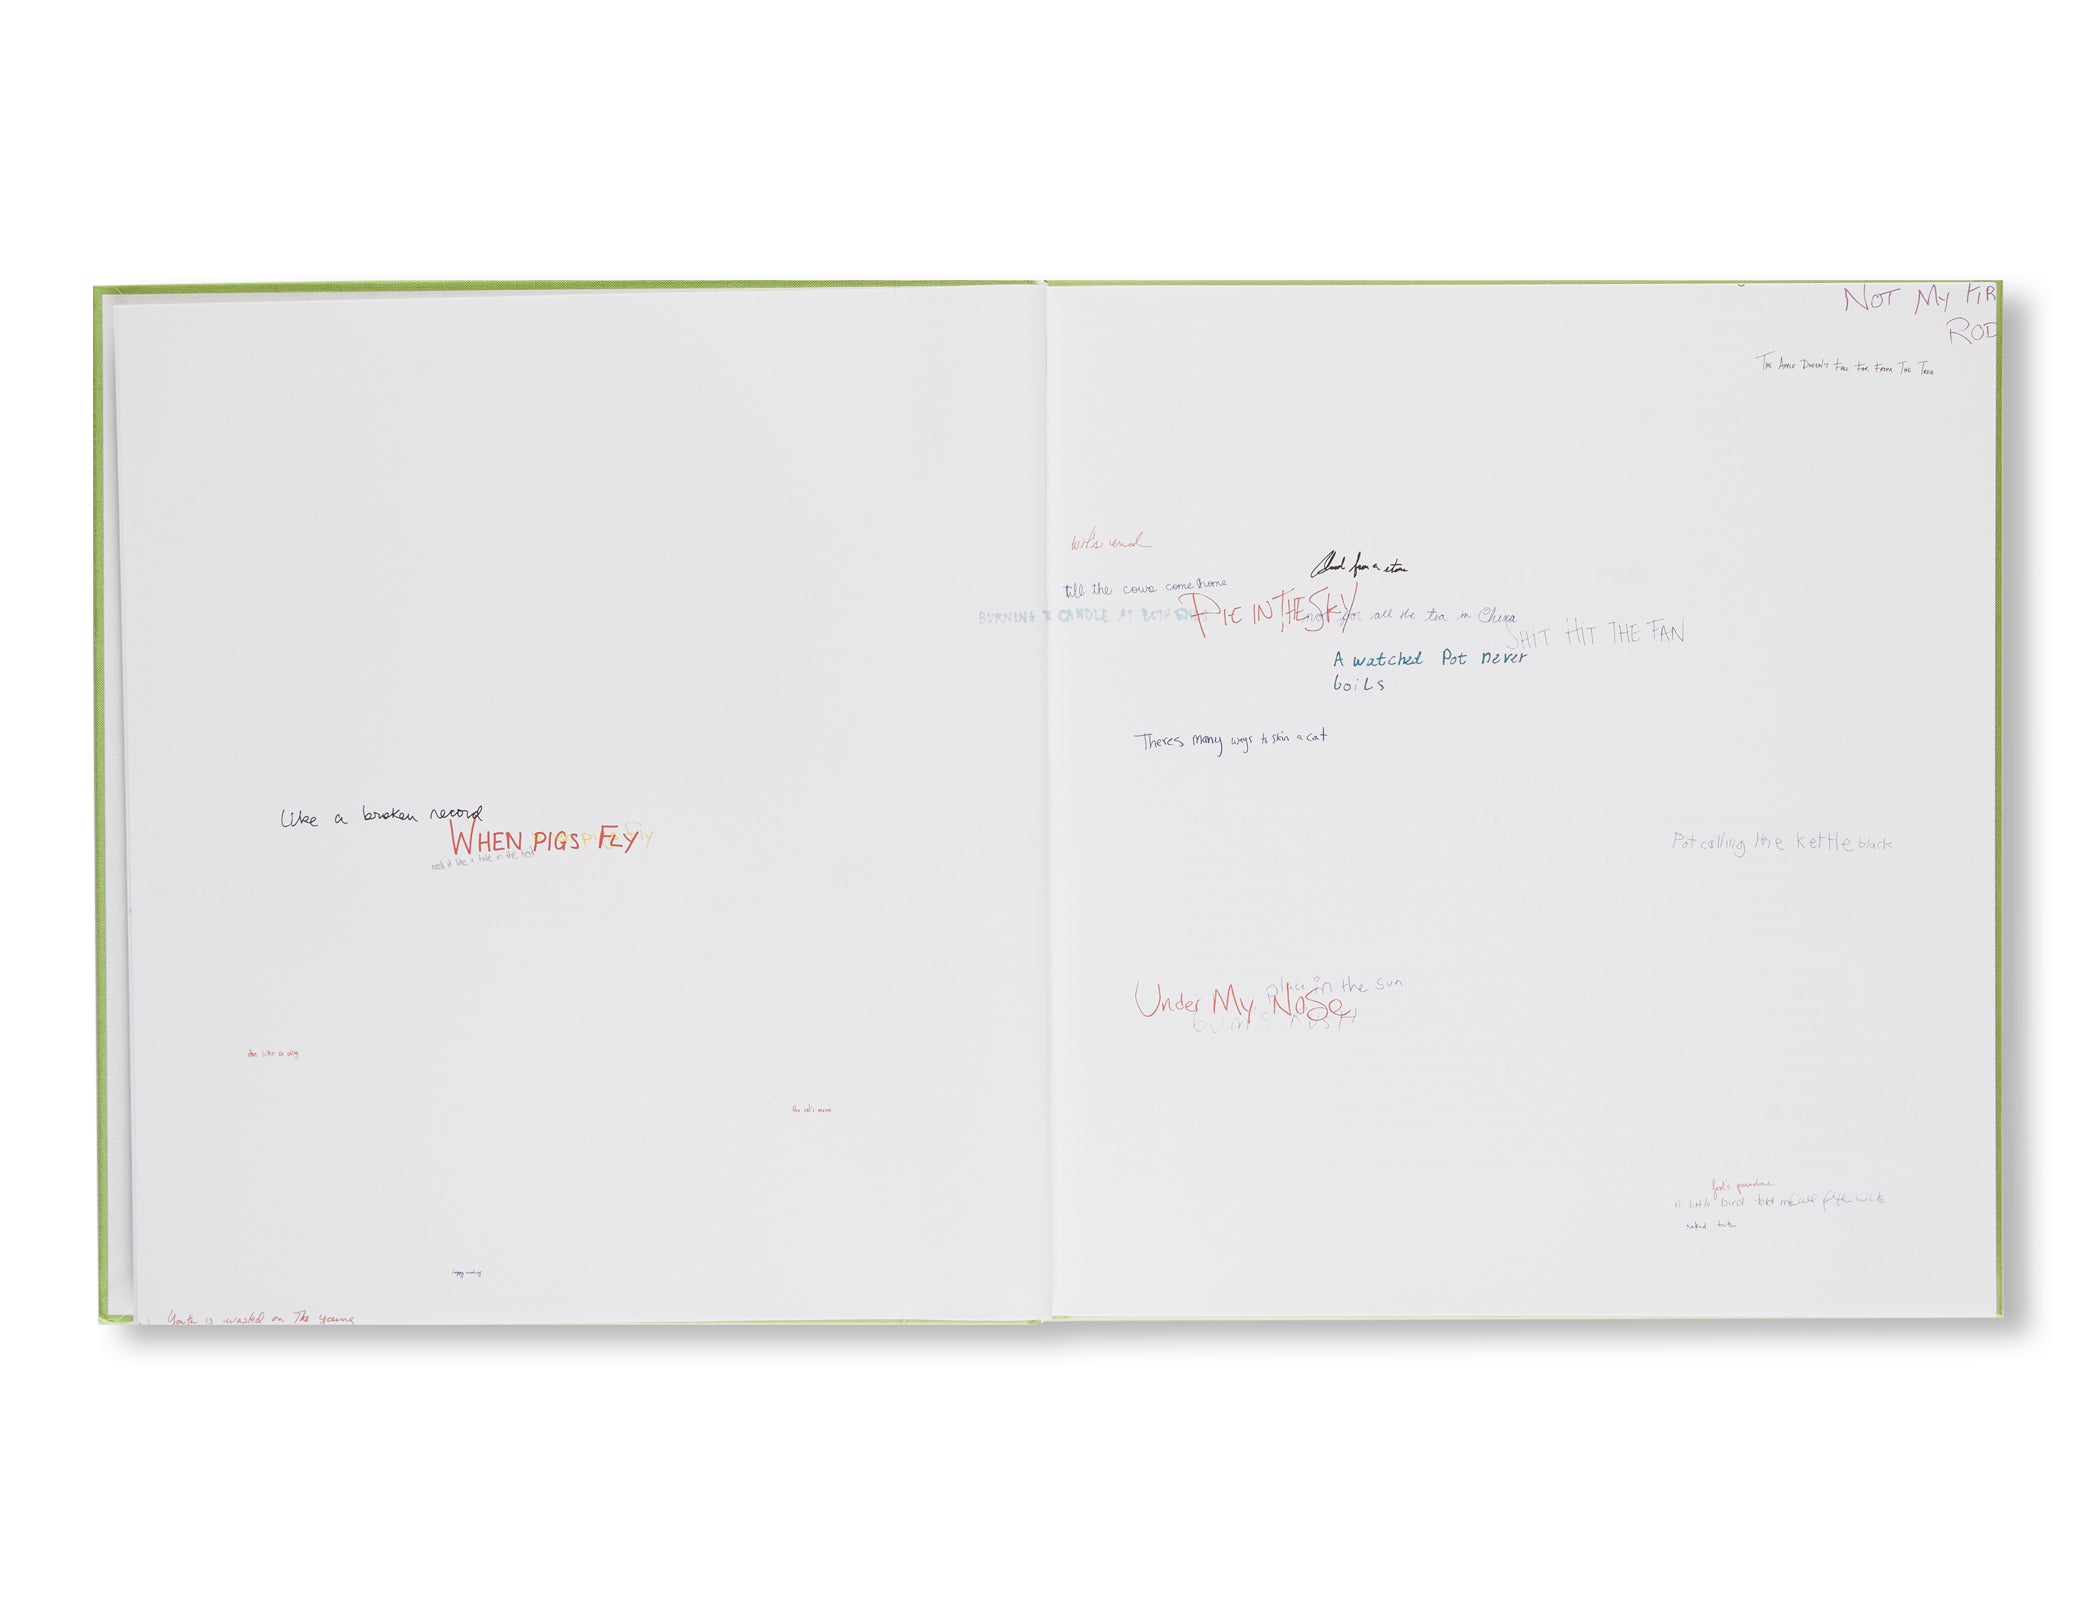 Like a broken record
WHEN PIGS FLY
need it like a hole in the
die like a dog
the cat's meow
Youth is wasted on The young
NOT MY FIR
ROD
THE APPLE DOESN'T FALL FAR FROM THE TREE
wit's end
from a stone
till the cows come home
BURNING CANDLE AT BOTH ENDS
PIE IN THE SKY
not for all the tea in China
SHIT HIT THE FAN
A watched Pot never
boiLs
Theres many ways to skin a cat
Pot calling the kettle black
place in the sun
Under My Nose
fool's paradise
A little bird told me
naked truth